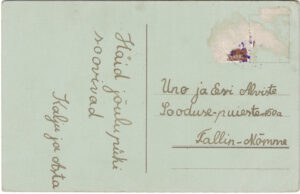 Häid jõulupühi
soovivad
Kalju ja Asta
Uno ja Eevi Alviste
Looduse-puiestee 50a
Tallin-Nõmme